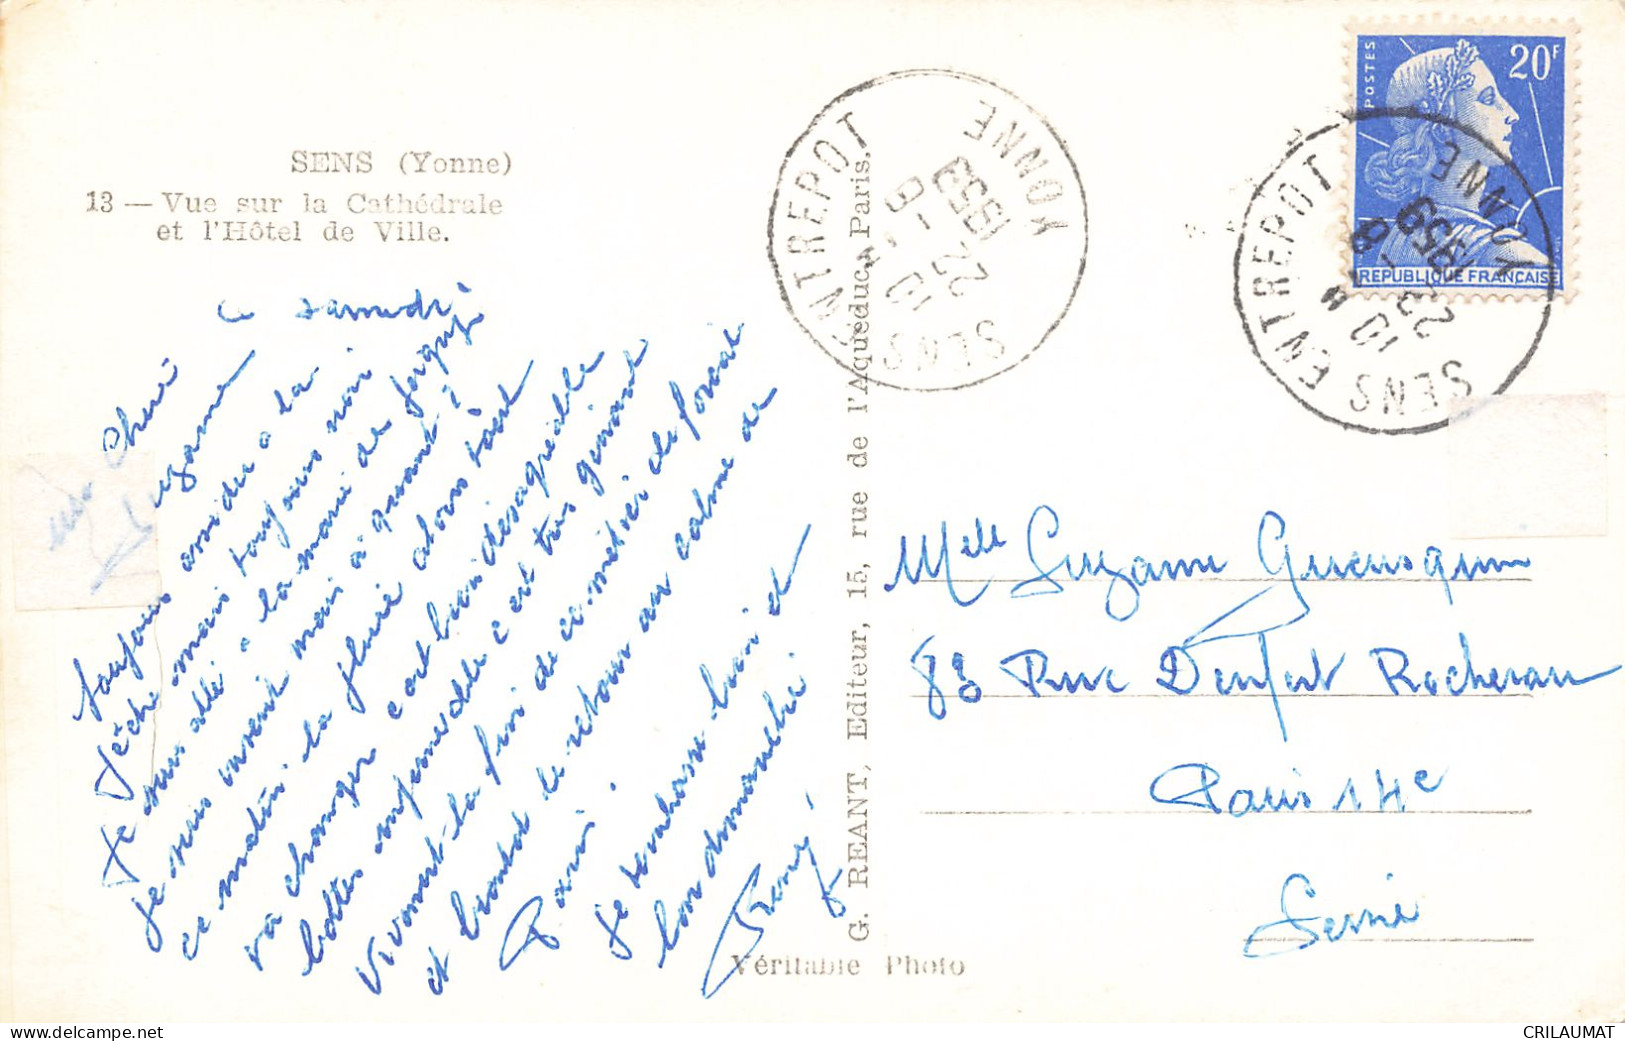 SENS (Yonne)
13 — Vue sur la Cathédrale
et l'Hôtel de Ville.
ce samedi
Cheri
Suzanne
toujours a la
Pêche mais toujours rien
Je suis allé a la mare de
je suis revenu mais a quand !
ce matin la pluie alors tout
va changer c'est bien désagréable
bottes imperméable c'est très gênant
Vivement la fin de ce métier de forçat
et bientot le retour au calme de
Paris.
Je t'embrasse bien et
bon dimanche
René
G. REANT, Editeur, 15, rue de l'Aquéduc, Paris.
Véritable Photo
SENS ENTREPOT YONNE
10 H
22 - 8
1959
SENS ENTREPOT YONNE
10 H
23 - 8
1959
POSTES
20F
REPUBLIQUE FRANÇAISE
Melle Suzanne
83 Rue Denfert Rochereau
Paris 14e
Seine
CRILAUMAT